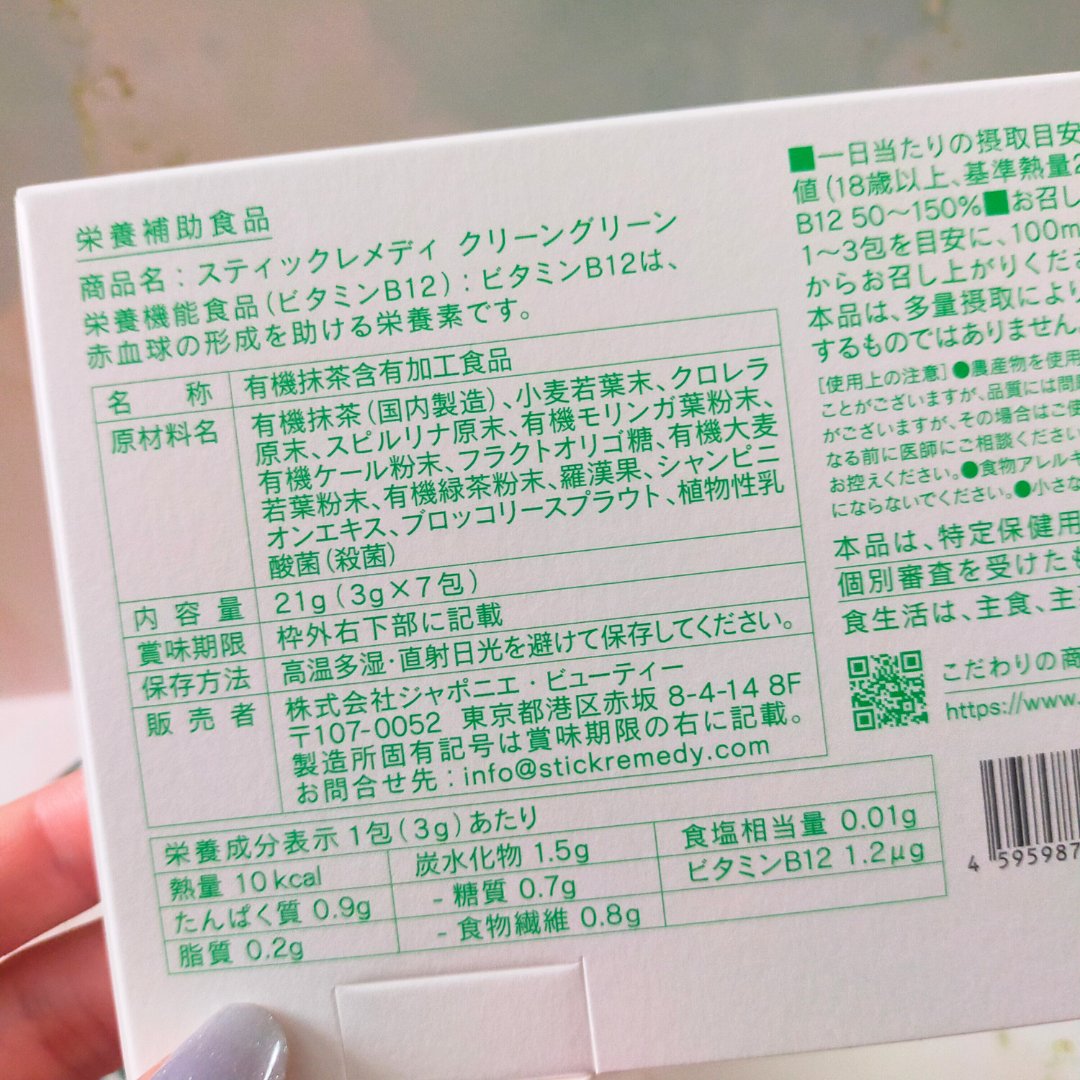 栄養補助食品
商品名：スティックレメディ クリーングリーン
栄養機能食品(ビタミンB12)：ビタミンB12は、
赤血球の形成を助ける栄養素です。
名 称 有機抹茶含有加工食品
原材料名 有機抹茶(国内製造)、小麦若葉末、クロレラ
原末、スピルリナ原末、有機モリンガ葉粉末、
有機ケール粉末、フラクトオリゴ糖、有機大麦
若葉粉末、有機緑茶粉末、羅漢果、シャンピニ
オンエキス、ブロッコリースプラウト、植物性乳
酸菌(殺菌)
内容量 21g(3g×7包)
賞味期限 枠外右下部に記載
保存方法 高温多湿・直射日光を避けて保存してください。
販売者 株式会社ジャポニエ・ビューティー
〒107-0052 東京都港区赤坂 8-4-14 8F
製造所固有記号は賞味期限の右に記載。
お問合せ先：info@stickremedy.com
栄養成分表示 1包(3g)あたり
熱量 10kcal
たんぱく質 0.9g
脂質 0.2g
炭水化物 1.5g
- 糖質 0.7g
- 食物繊維 0.8g
食塩相当量 0.01g
ビタミンB12 1.2μg
■一日当たりの摂取目安
値(18歳以上、基準熱量2
B12 50～150%■お召し
1～3包を目安に、100m
からお召し上がりくださ
本品は、多量摂取により
するものではありません。
[使用上の注意]●農産物を使用
ことがございますが、品質には問題
がございますが、その場合はご使
なる前に医師にご相談ください
お控えください。●食物アレルギ
にならないでください。●小さな
本品は、特定保健用
個別審査を受けたも
食生活は、主食、主
こだわりの商
https://www.
4 595987